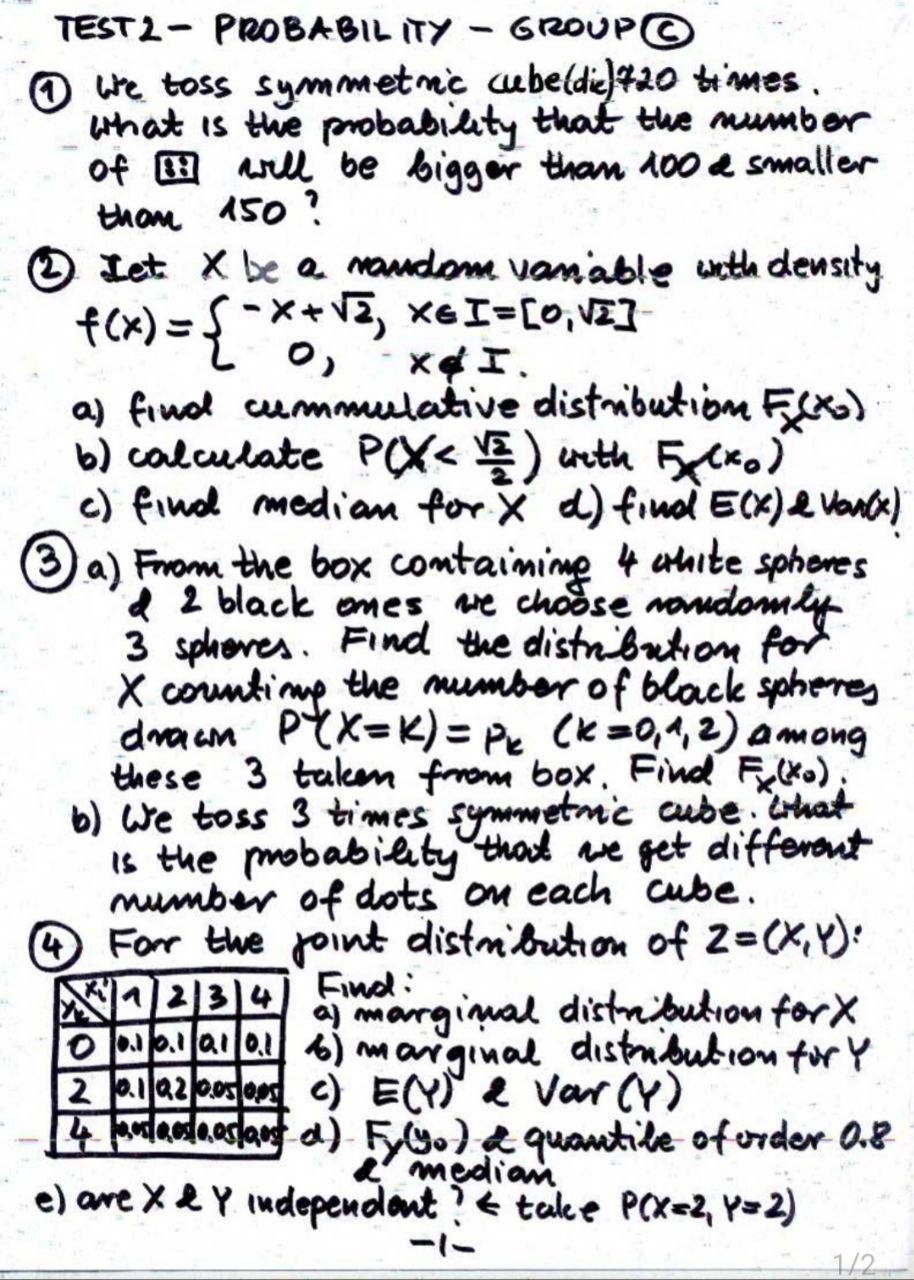 TEST2 - PROBABILITY - GROUP Ⓒ
① We toss symmetric cube(die) 720 times.
What is the probability that the number
of ⚅ will be bigger than 100 & smaller
than 150?
② Let X be a random variable with density
f(x) = { -x+√2, x∈I=[0,√2]
0, x∉I.
a) find cummulative distribution Fₓ(x₀)
b) calculate P(X < √2/2) with Fₓ(x₀)
c) find median for X d) find E(X) & Var(x)
③ a) From the box containing 4 white spheres
& 2 black ones we choose randomly
3 spheres. Find the distribution for
X counting the number of black spheres
drawn P(X=K) = pₖ (k=0,1,2) among
these 3 taken from box. Find Fₓ(x₀).
b) We toss 3 times symmetric cube. What
is the probability that we get different
number of dots on each cube.
④ For the joint distribution of Z=(X,Y):
Yₖ \ Xᵢ 1 2 3 4
0 0.1 0.1 0.1 0.1
2 0.1 0.2 0.05 0.05
4 0.05 0.05 0.05 0.05
Find:
a) marginal distribution for X
b) marginal distribution for Y
c) E(Y) & Var(Y)
d) Fy(y₀) & quantile of order 0.8
& median
e) are X & Y independent? ← take P(X=2, Y=2)
-1-
1/2